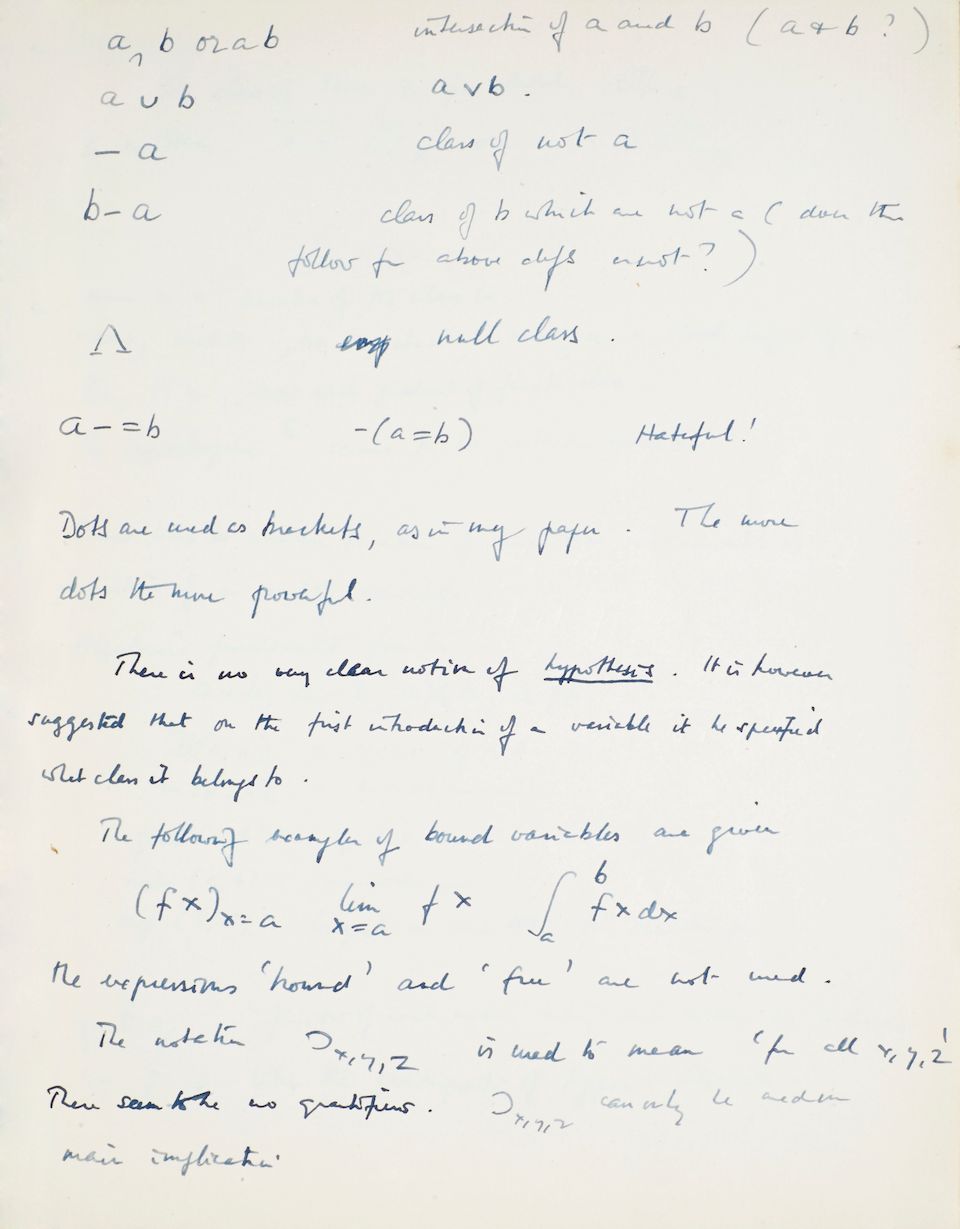 a ∩ b or ab intersection of a and b (a & b ?)
a ∪ b a v b .
– a class of not a
b – a class of b which are not a ( does this
follow fr above defs or not ? )
Λ null class .
a – = b –(a = b) Hateful !
Dots are used as brackets, as in my paper . The more
dots the more powerful .
There is no very clear notion of hypothesis . It is however
suggested that on the first introduction of a variable it be specified
what class it belongs to .
The following examples of bound variables are given
(f x)x=a lim x=a f x ∫ₐᵇ f x dx
the expressions 'bound' and 'free' are not used .
The notation ⊃x,y,z is used to mean 'for all x,y,z'
There seem to be no quantifiers . ⊃x,y,z can only be used in
main implication